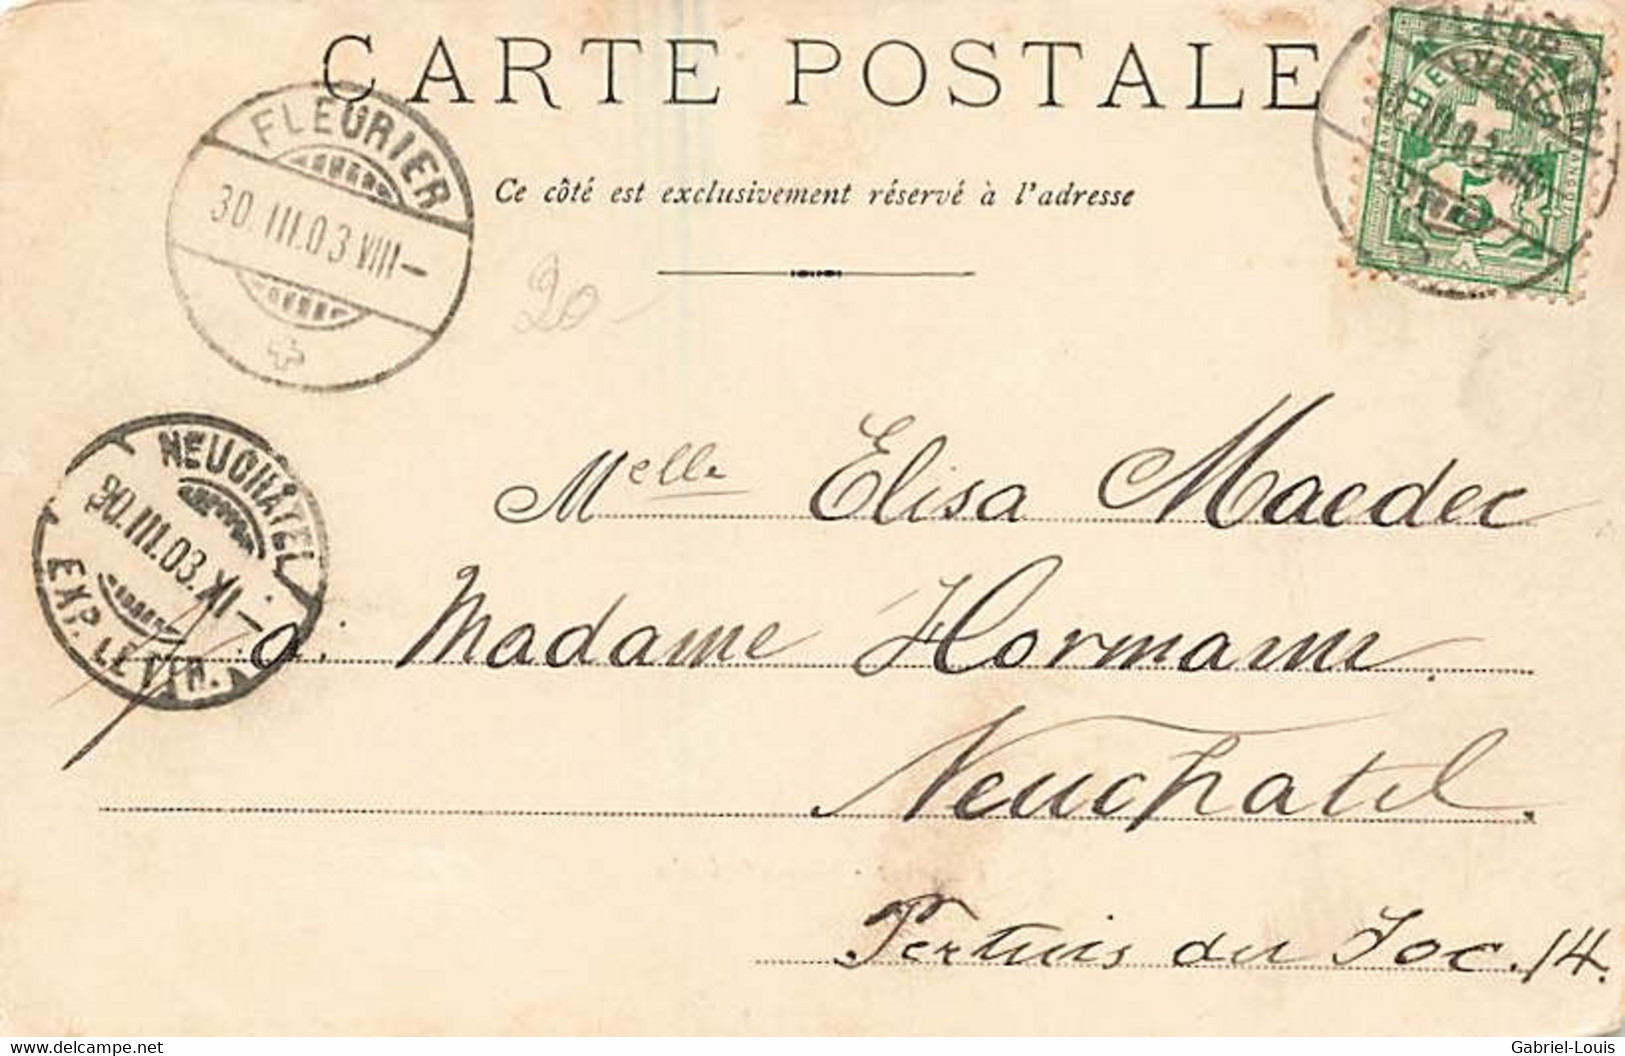 CARTE POSTALE
FLEURIER
30.III.03 VIII-
Ce côté est exclusivement réservé à l'adresse
HELVETIA
5
20-
NEUCHÂTEL
30.III.03.XI-
EXP. LETTR.
Melle Elisa Maeder
a. Madame Hormann
Neuchatel.
Pertuis du Soc. 14.
www.delcampe.net
Gabriel-Louis